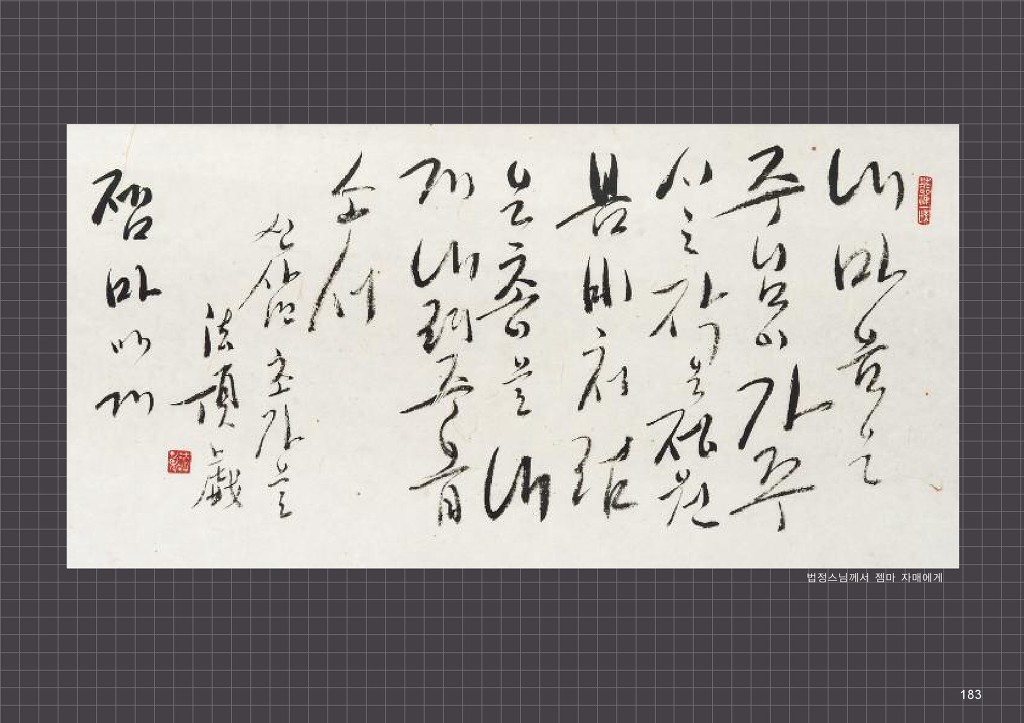 내 마음은
주님이 가꾸
시는 작은 정원
봄비처럼
은총을 내
게 내려주옵
소서
초가을
法頂 戱
젬마
법정스님께서 젬마 자매에게
183